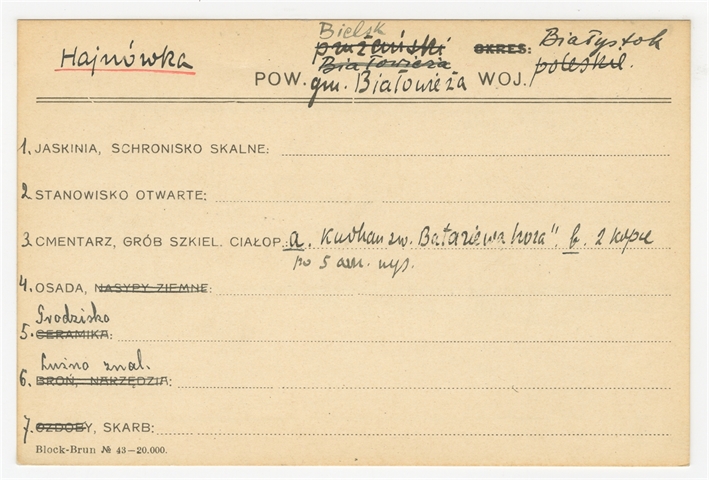 Hajnówka
Bielsk
prużański OKRES: Białystok
Białowieża poleskie.
POW. gm. Białowieża WOJ.
1. JASKINIA, SCHRONISKO SKALNE:
2 STANOWISKO OTWARTE:
3. CMENTARZ, GRÓB SZKIEL. CIAŁOP.: a. Kurhan zw. "Batariewa hora". b. 2 kopce
po 5 wys.
4. OSADA, NASYPY ZIEMNE:
Grodzisko
5. CERAMIKA:
Luźno znal.
6. BROŃ, NARZĘDZIA:
7. OZDOBY, SKARB:
Block-Brun № 43—20.000.